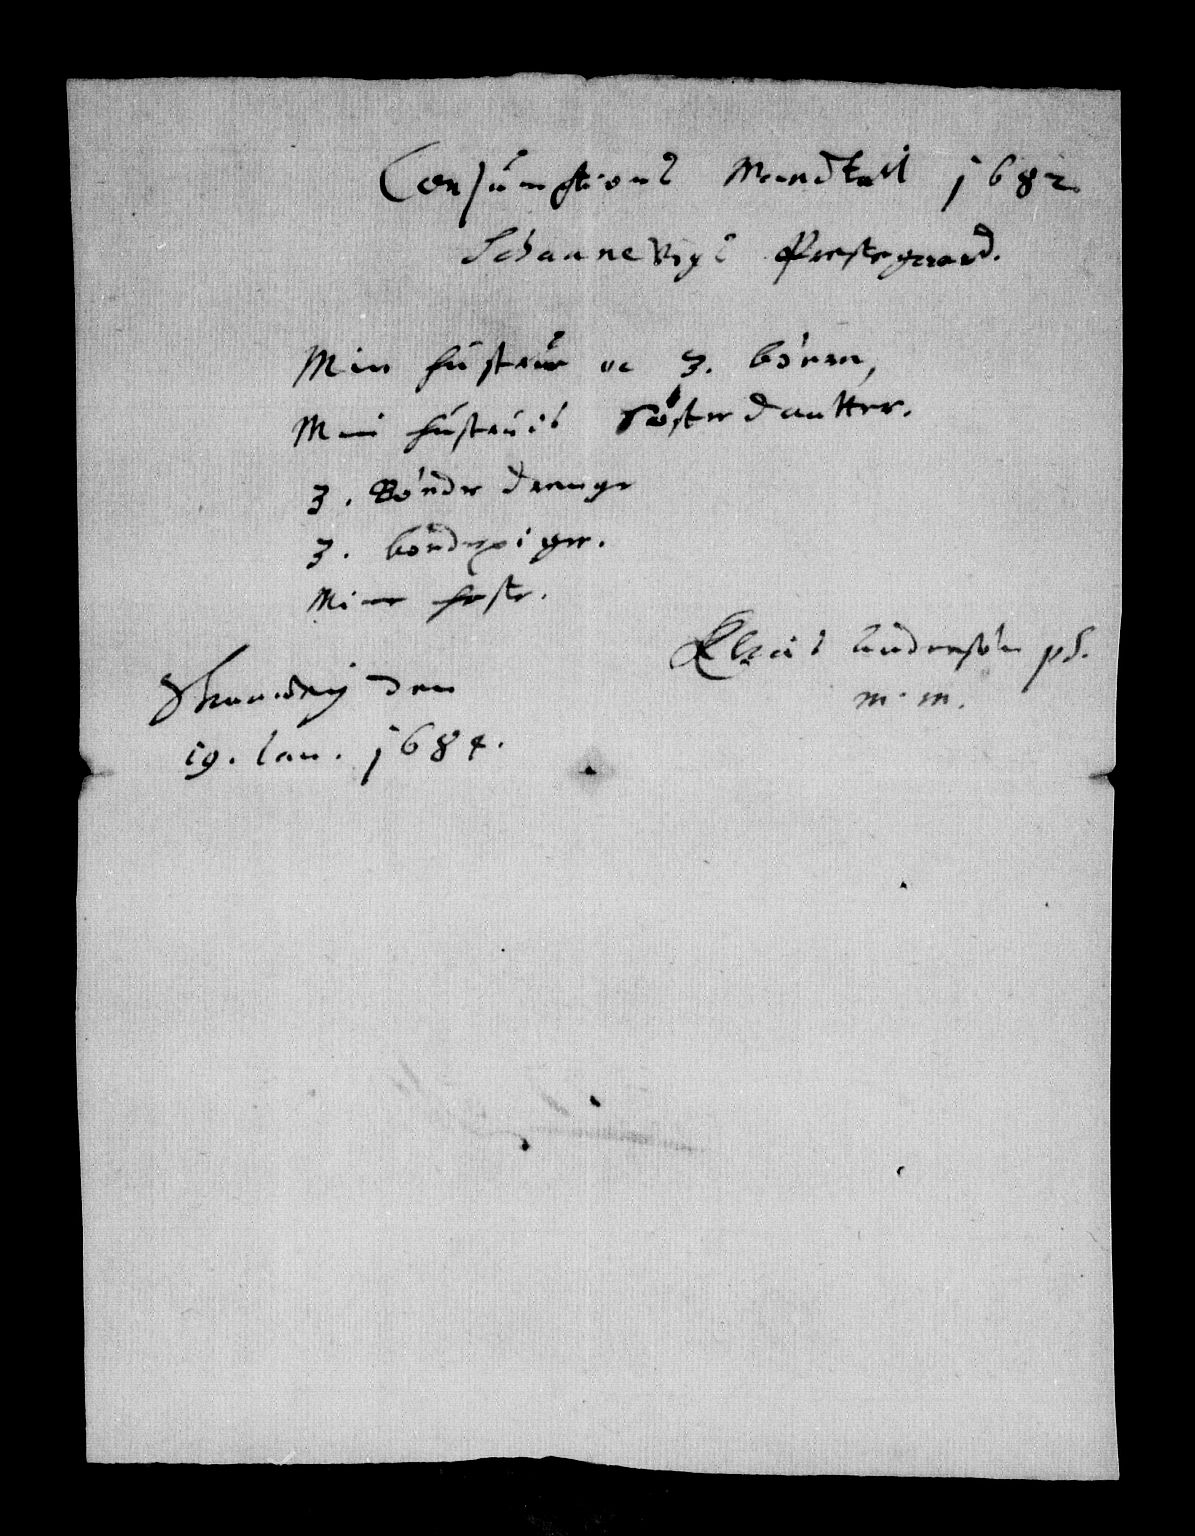 Consúmptions Mandtall 1682
Schaanevigs Prestegaard.
Min hústrúe oc 3. börnn,
Min hústrúes Söster dautter.
3. Bönder drenge
3. bönderpiger.
Mine heste.
Clais Andersön pS.
m. m.
Skaanevig den
19. Ian. 1684.